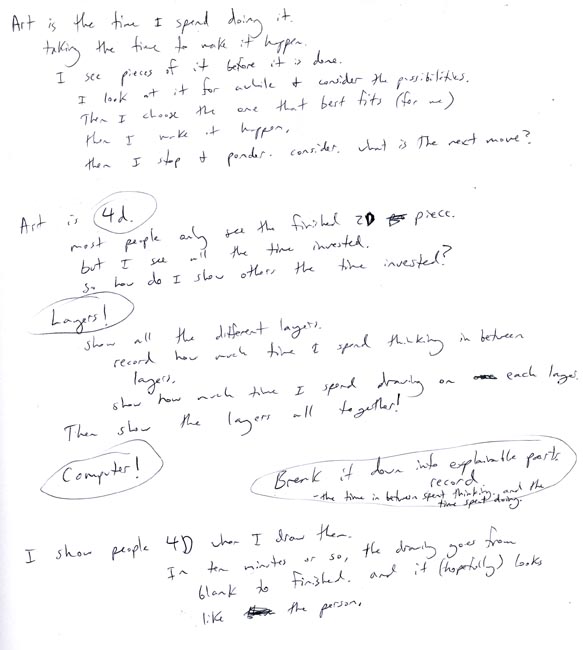 Art is the time I spend doing it.
taking the time to make it happen.
I see pieces of it before it is done.
I look at it for awhile & consider the possibilities.
Then I choose the one that best fits (for me)
then I make it happen.
then I stop & ponder. consider. what is the next move?
Art is 4d.
most people only see the finished 2D piece.
but I see all the time invested.
so how do I show others the time invested?
Layers!
show all the different layers.
record how much time I spend thinking in between
layers.
show how much time I spend drawing on each layer.
Then show the layers all together!
Computer!
Break it down into explainable parts
record
- the time in between spent thinking. and the
time spent doing.
I show people 4D when I draw them.
In ten minutes or so, the drawing goes from
blank to finished. and it (hopefully) looks
like the person.